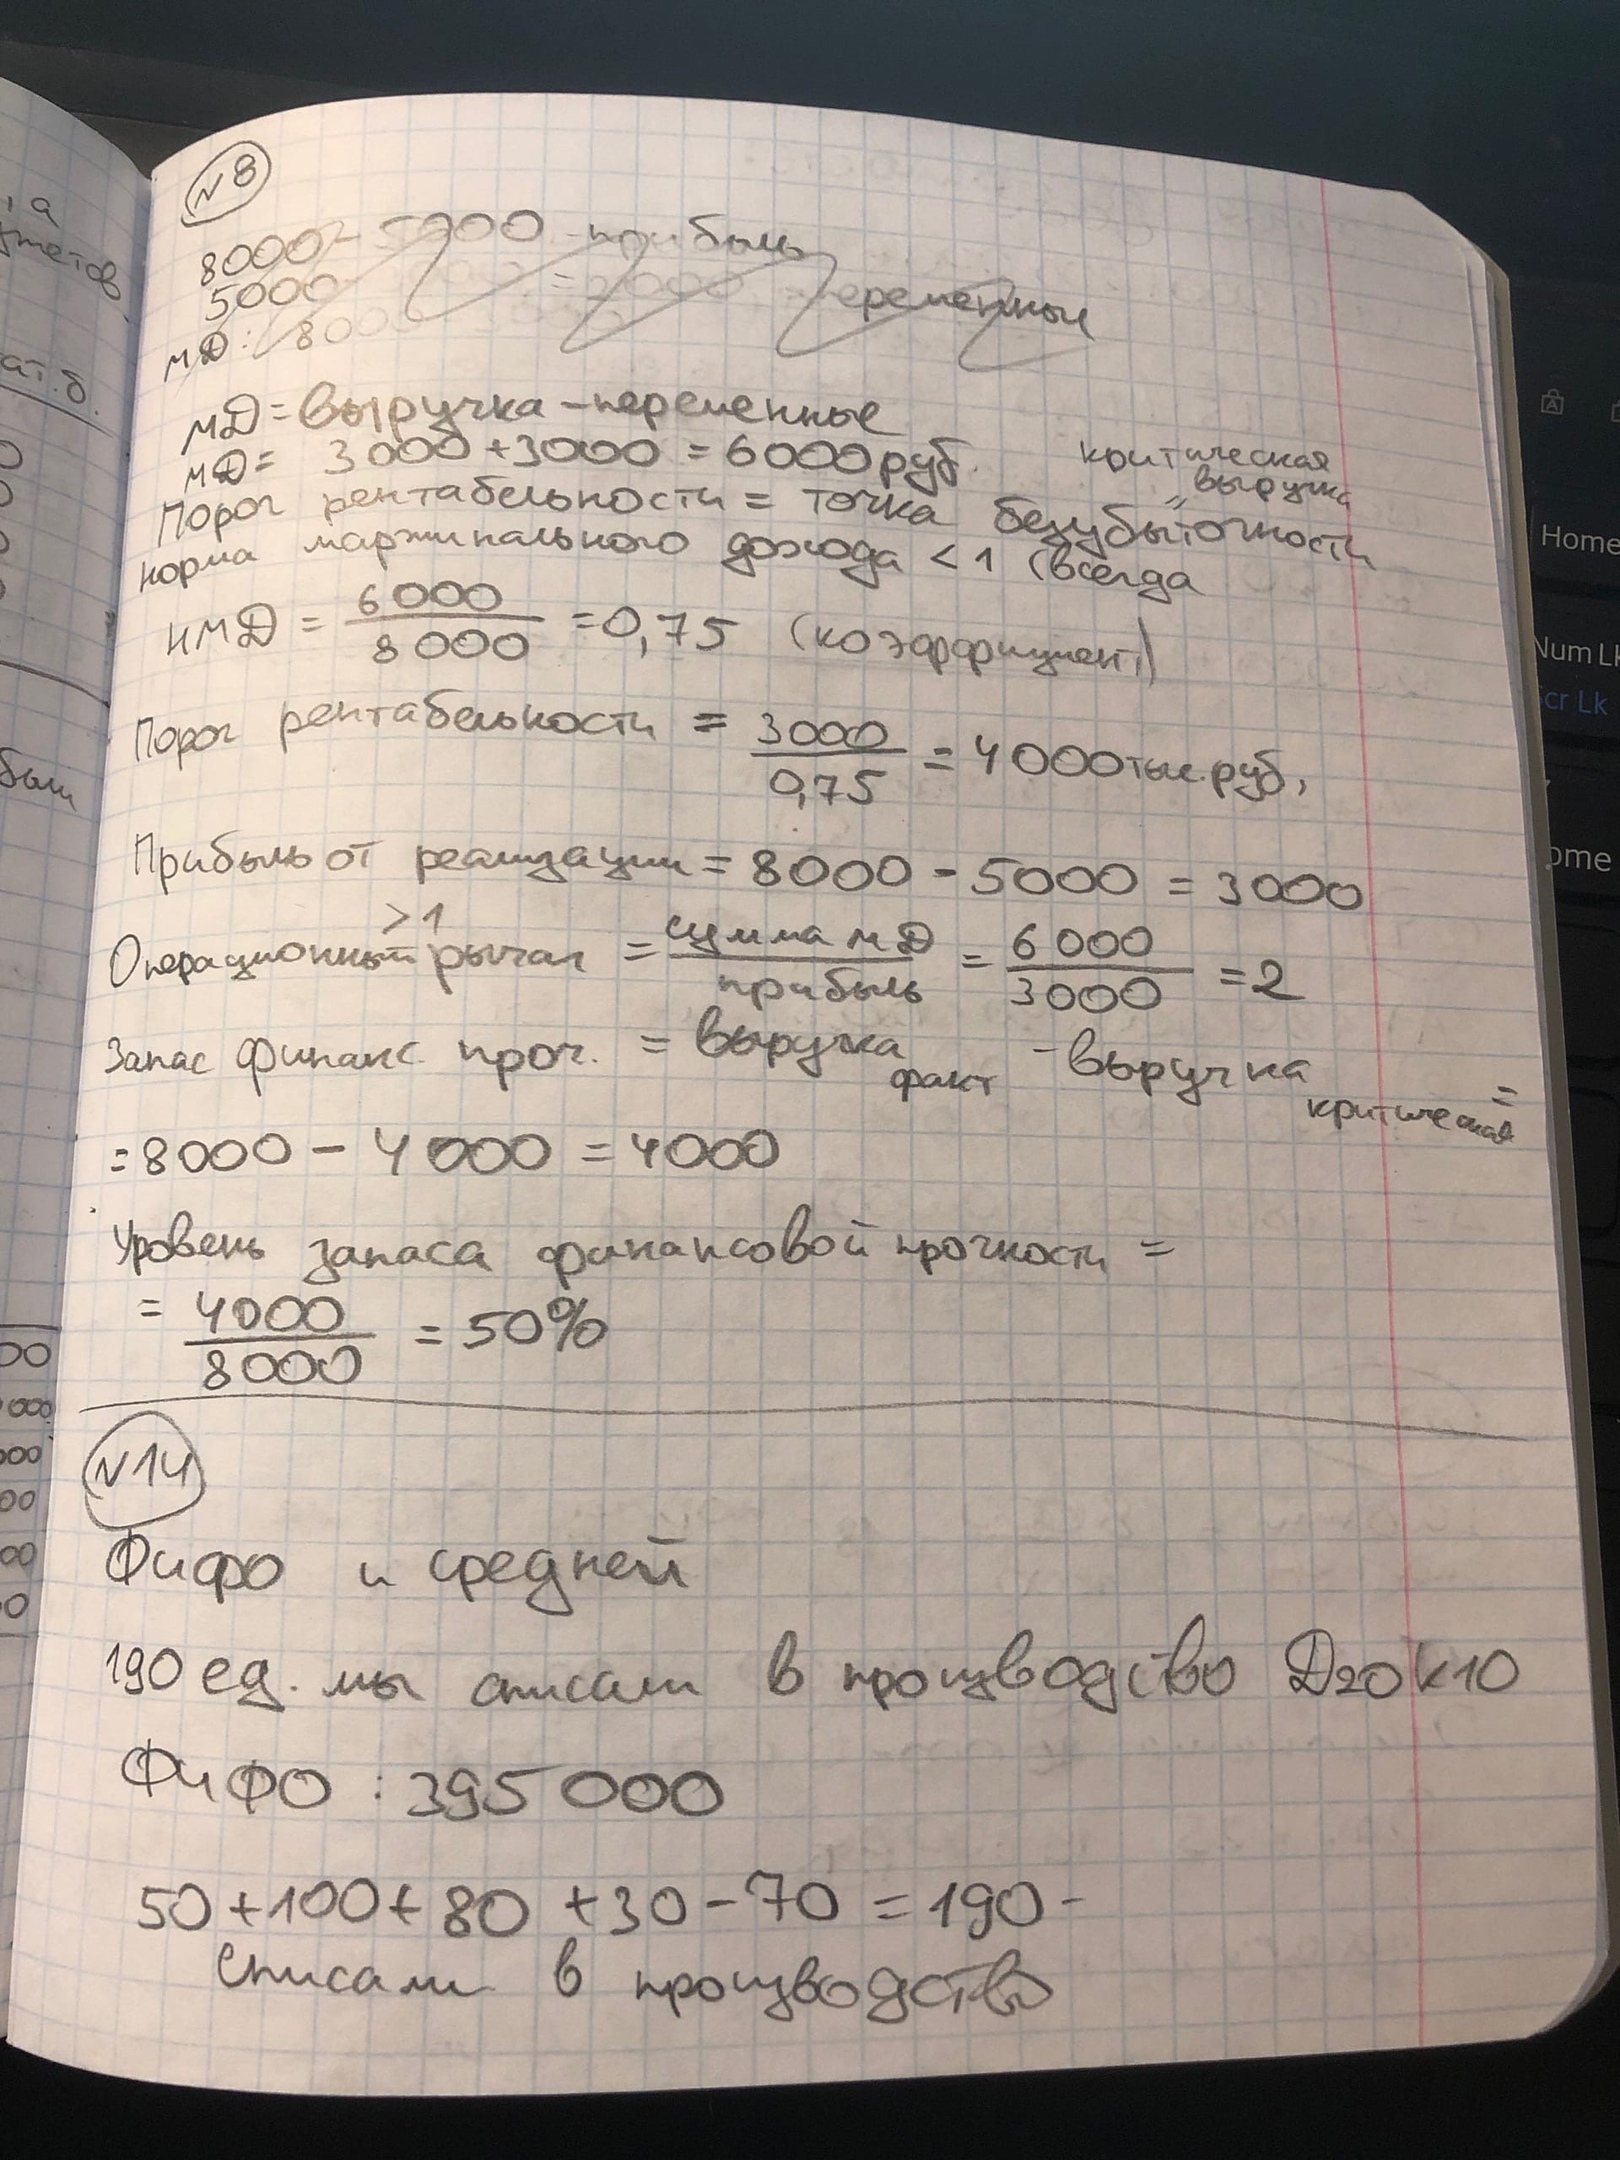 , а
ат.б.
№8
8000 - 5000 - прибыль
5000 = 2000 переменные
МД: 8000
МД = Выручка - переменные
МД = 3000 + 3000 = 6000 руб.
критическая
выручка
"
Порог рентабельности = точка безубыточности
норма маржинального дохода < 1 (всегда
НМД = 6000 / 8000 = 0,75 (коэффициент)
Порог рентабельности = 3000 / 0,75 = 4000 тыс. руб,
Прибыль от реализации = 8000 - 5000 = 3000
>1
Операционный рычаг = сумма МД / прибыль = 6000 / 3000 = 2
Запас финанс. проч. = Выручка факт - Выручка критическая =
= 8000 - 4000 = 4000
Уровень запаса финансовой прочности =
= 4000 / 8000 = 50%
№14
Фифо и средней
190 ед. мы списали в производство Д20К10
ФиФО : 395 000
50 + 100 + 80 + 30 - 70 = 190 -
списали в производство
00
000
000
00
00
0
Home
Num Lk
Scr Lk
ome